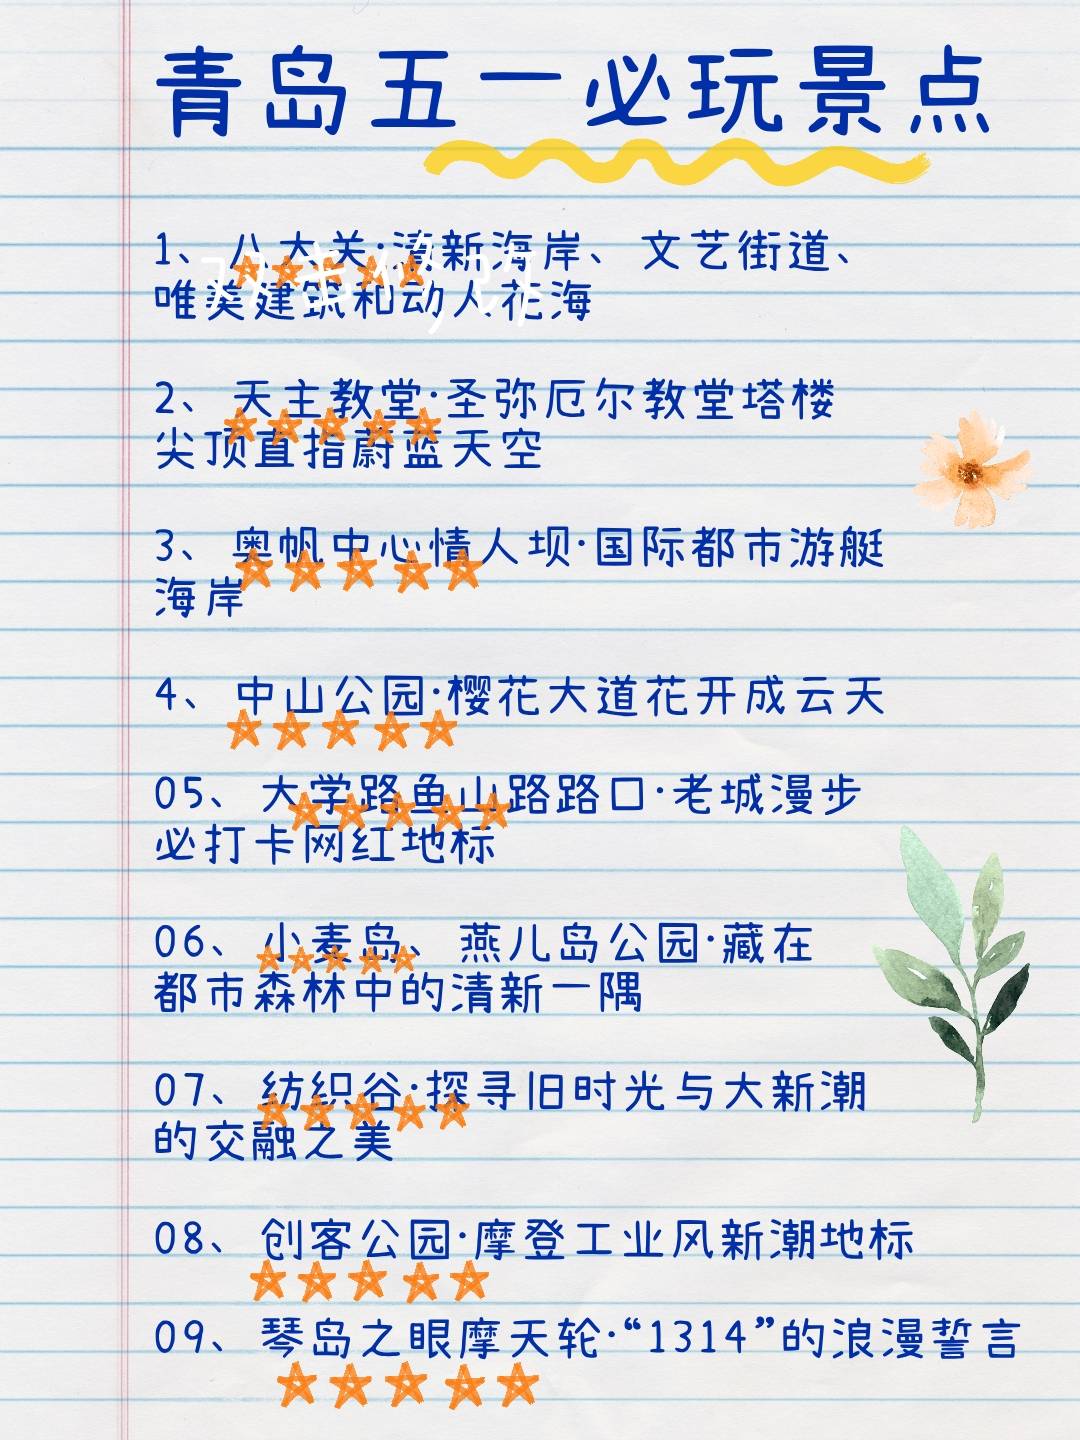 青岛五一必玩景点
1、八大关·清新海岸、文艺街道、
双击修改
唯美建筑和动人花海
2、天主教堂·圣弥厄尔教堂塔楼
尖顶直指蔚蓝天空
3、奥帆中心情人坝·国际都市游艇
海岸
4、中山公园·樱花大道花开成云天
05、大学路鱼山路路口·老城漫步
必打卡网红地标
06、小麦岛、燕儿岛公园·藏在
都市森林中的清新一隅
07、纺织谷·探寻旧时光与大新潮
的交融之美
08、创客公园·摩登工业风新潮地标
09、琴岛之眼摩天轮·“1314”的浪漫誓言